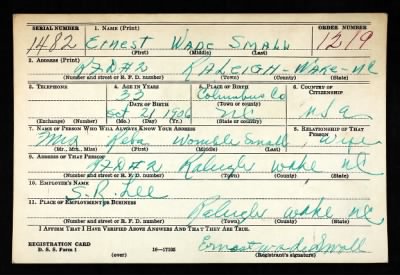 SERIAL NUMBER 1. NAME (Print) ORDER NUMBER
1482 ERNEST WADE SMALL 1219
(First) (Middle) (Last)
2. ADDRESS (Print)
RFD#2 RALEIGH - WAKE - NC
(Number and street or R. F. D. number) (Town) (County) (State)
3. TELEPHONE 4. AGE IN YEARS 5. PLACE OF BIRTH 6. COUNTRY OF CITIZENSHIP
33 Columbus Co
DATE OF BIRTH (Town or county)
Oct 21 1906 N.C. U S A
(Exchange) (Number) (Mo.) (Day) (Yr.) (State or country)
7. NAME OF PERSON WHO WILL ALWAYS KNOW YOUR ADDRESS 8. RELATIONSHIP OF THAT PERSON
Mrs Reba Womble Small, Wife
(Mr., Mrs., Miss) (First) (Middle) (Last)
9. ADDRESS OF THAT PERSON
RFD#2 Raleigh Wake NC
(Number and street or R. F. D. number) (Town) (County) (State)
10. EMPLOYER'S NAME
S. R. Lee
11. PLACE OF EMPLOYMENT OR BUSINESS
Raleigh wake NC
(Number and street or R. F. D. number) (Town) (County) (State)
I AFFIRM THAT I HAVE VERIFIED ABOVE ANSWERS AND THAT THEY ARE TRUE.
REGISTRATION CARD
D. S. S. Form 1 16—17105 Ernest wade Small
(over) (Registrant's signature)